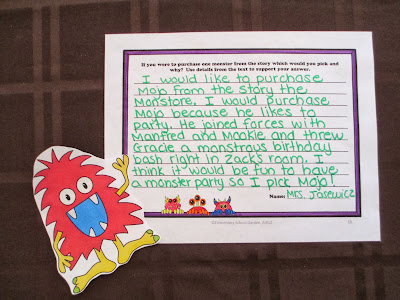 If you were to purchase one monster from the story which would you pick and
why? Use details from the text to support your answer.
I would like to purchase
Mojo from the story the
Monstore. I would purchase
Mojo because he likes to
party. He joined forces with
Manfred and Mookie and threw
Gracie a monstrous birthday
bash right in Zack's room. I
think it would be fun to have
a monster party so I pick Mojo!
Name: Mrs. Jasewicz